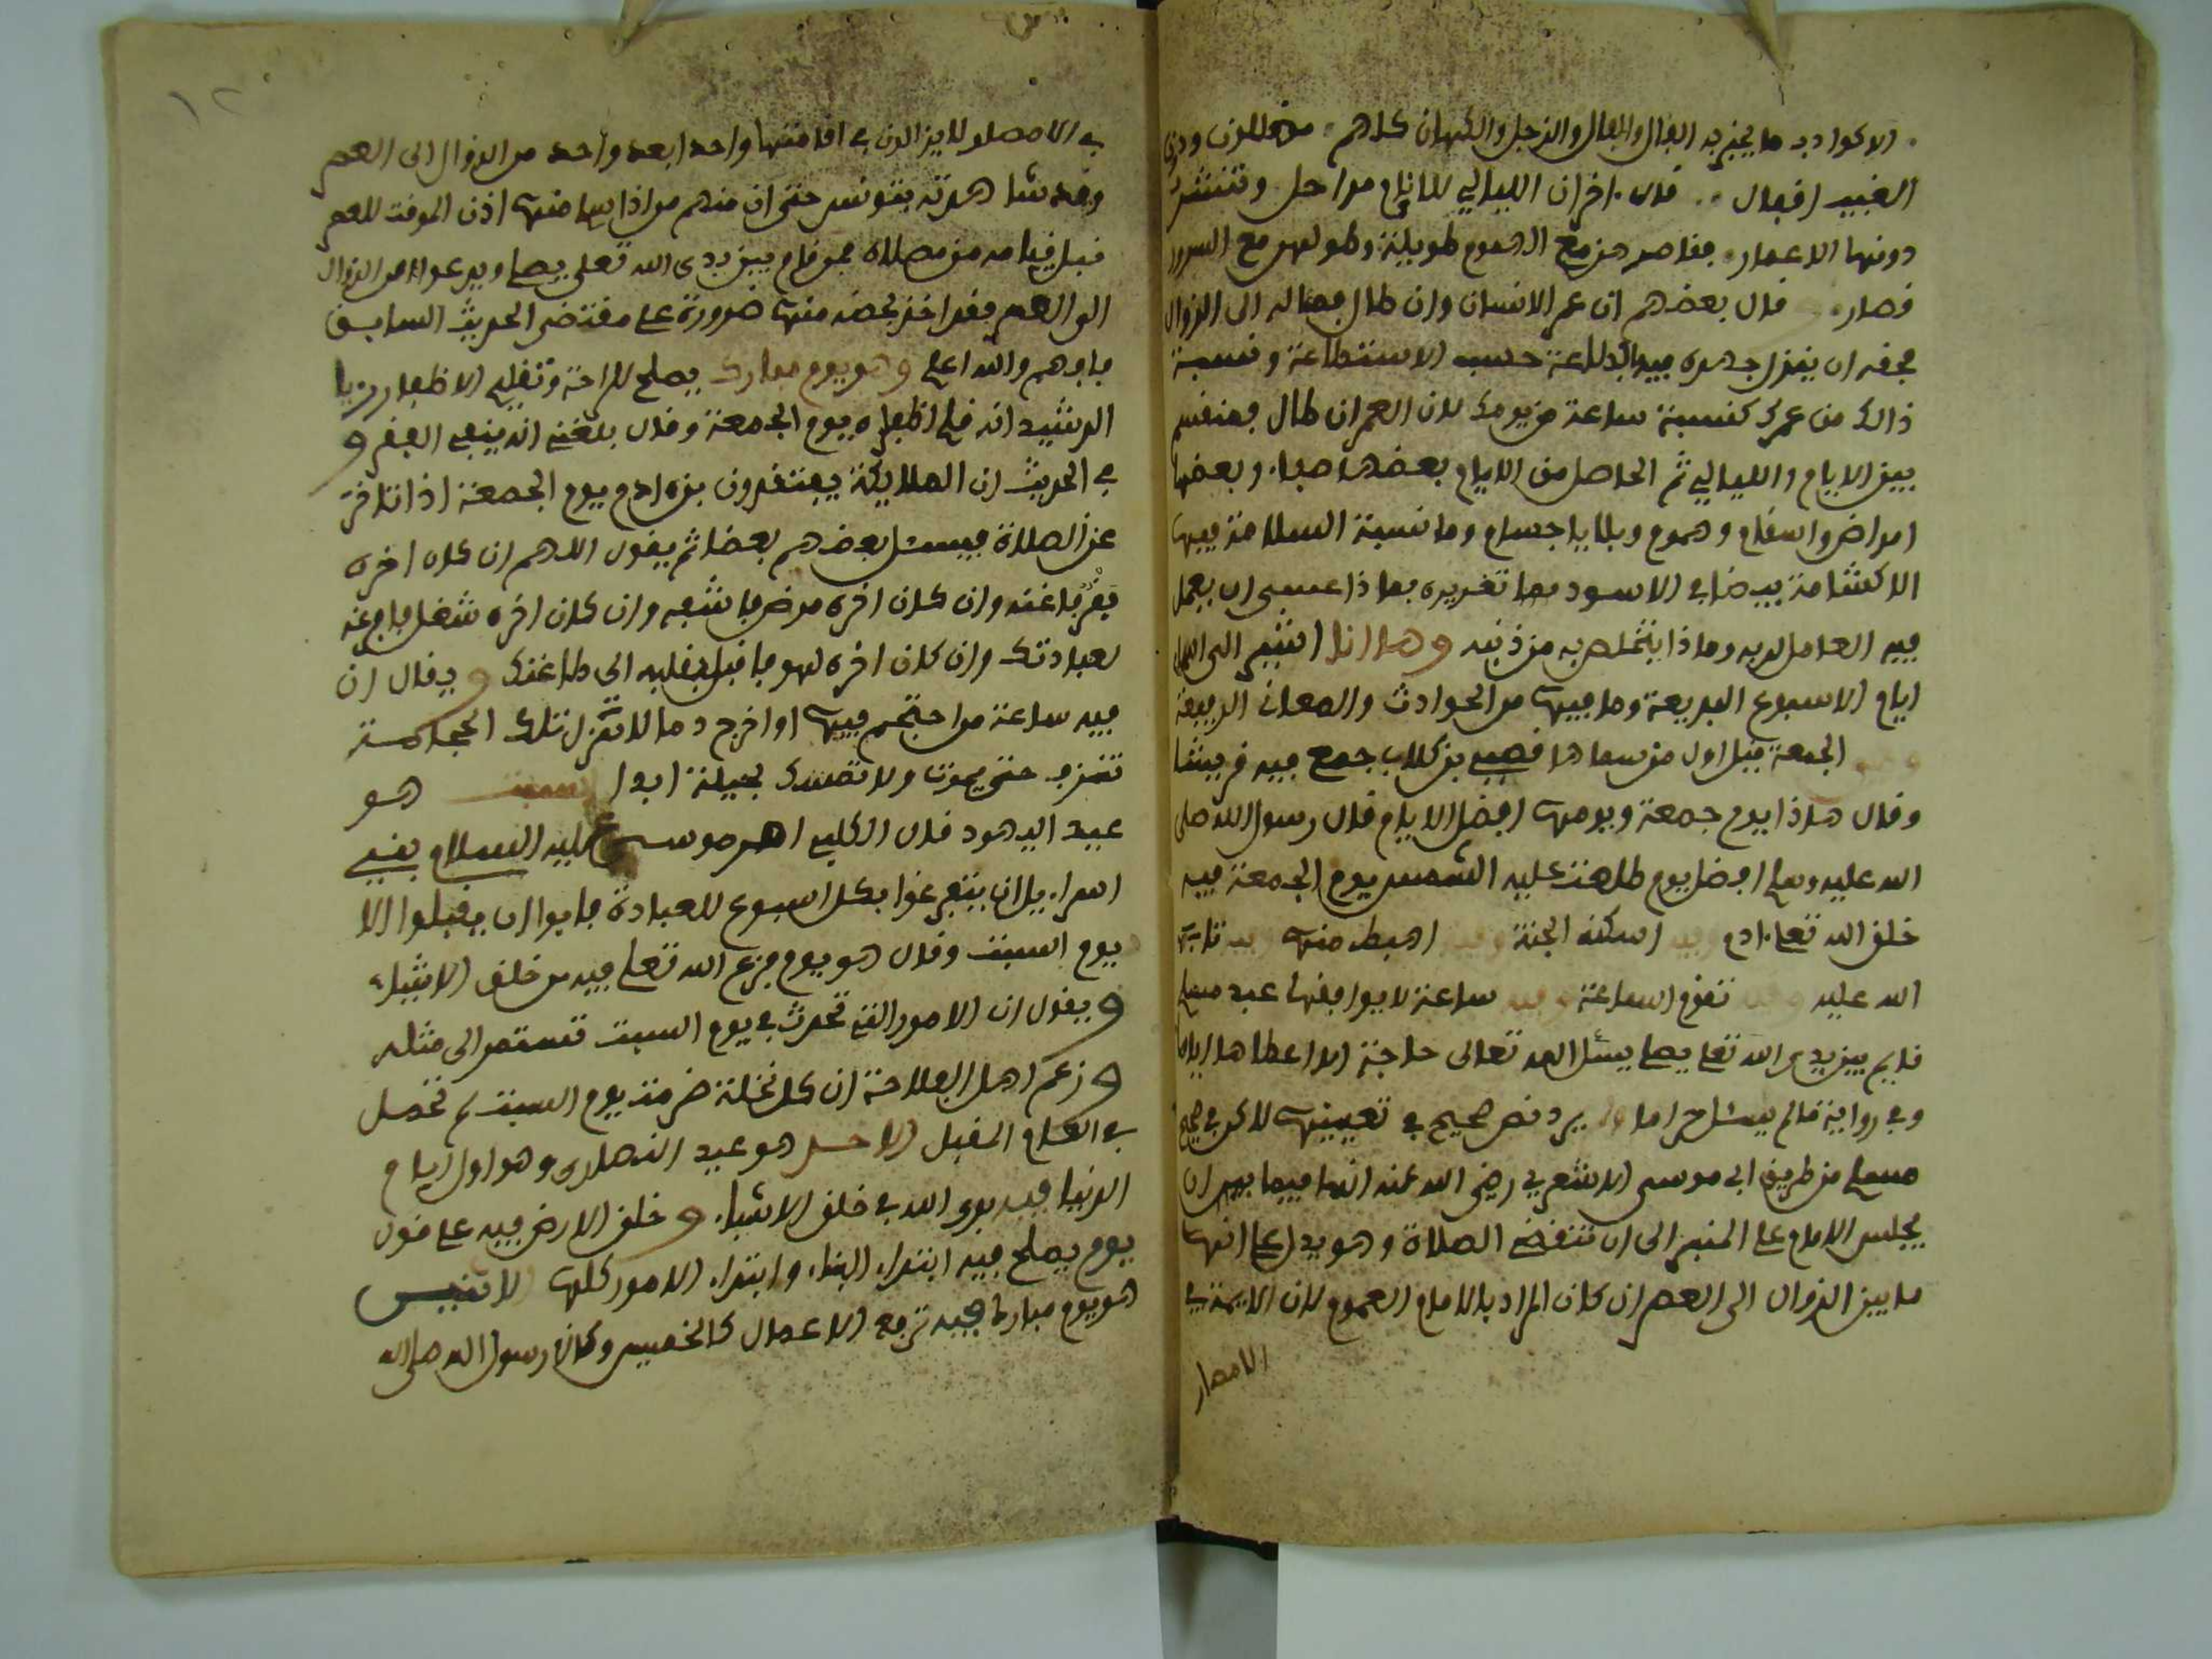 الاكوادب ما يخبر به الفال والفال والزجر والكهان كلهم مضللون ودون
الغيب اقفال قال اخر ان الليالي للانام مراحل وتنتشر
دونها الاعمار فقاصرهن مع الهموم طويلة وطولهن مع السرور
قصار و قال بعضهم ان عمر الانسان وان طال فماله الى الزوال
فحقه ان يبذل جهده فيه بالطاعة حسب الاستطاعة ونسبة
ذالك من عمرك كنسبة ساعة من يومك لان العمر ان طال فمنقسم
بين الايام والليالي ثم الحاصل من الايام بعضها صبا وبعضها
امراض واسقام وهموم وبلايا جسام وما نسبة السلامة فيها
الا كشامة بيضا في الاسود فما تغريره فماذا عسى ان يعمل
فيه العامل لربه وماذا يتخلص به من ذنبه وها انا اشير الى
ايام الاسبوع البديعة وما فيها من الحوادث والمعاني الرفيعة
الجمعة قيل اول من سماها قصي بن كلاب جمع فيه قريشا
وقال هاذا يوم جمعة ويومها افضل الايام قال رسول الله صلى
الله عليه وسلم افضل يوم طلعت عليه الشمس يوم الجمعة فيه
خلق الله تعلى ادم وفيه اسكنه الجنة وفيه اهبط منها وفيه تاب
الله عليه وفيه تقوم الساعة وفيه ساعة لا يوافقها عبد مسلم
قايم بين يدي الله تعلى يصلي يسئل الله تعالى حاجة الا اعطاها اياه
وفي رواية ما لم يسئل حراما ولم يرد نص صحيح في تعيينها لاكن في صحيح
مسلم من طريق ابي موسى الاشعري رضي الله عنه انها فيما بين ان
يجلس الامام على المنبر الى ان تنقضي الصلاة وهو يدل على انها
ما بين الزوال الى العصر ان كان المراد بالامام العموم لان الايمة في
الامصار
في الامصار لا يزالون في اقامتها واحد ابعد واحد من الزوال الى العصر
وقد شاهدته بتونس حتى ان منهم من اذا سلم منها اذن الموقت للعصر
قبل قيامه من مصلاه فمن قام بين يدي الله تعلى يصلي ويدعو الله من الزوال
الى العصر فقد اخذ بحضه منها ضرورة على مقتضى الحديث السابق
فافهم والله اعلم وهو يوم مبارك يصلح للراحة وتقليم الاظفار
الرشيد انه قلم اظفاره يوم الجمعة وقال بلغني انه ينفي الفقر و
في الحديث ان الملايكة يفتقدون بني ادم يوم الجمعة اذا تاخر
عن الصلاة فيسئل بعضهم بعضا ثم يقول اللهم ان كان اخره
فقر فاغنه وان كان اخره مرض فاشفه وان كان اخره شغل ففرغه
لعبادتك وان كان اخره لهو فاقبل بقلبه الى طاعتك و يقال ان
فيه ساعة من احتجم فيها او اخرج دما لا تزل تلك الحجامة
تنزف حتى يموت ولا تمسك بحيلة ابدا السبت هو
عيد اليهود قال الكليم امر موسى عليه السلام بني
اسراييل ان يتفرغوا بكل اسبوع للعبادة فابوا ان يقبلوا الا
يوم السبت وقال هو يوم فرغ الله تعلى فيه من خلق الاشياء
و يقول ان الامور التي تحدث في يوم السبت تستمر الى مثله
و زعم اهل الفلاحة ان كل نخلة ضرمت يوم السبت لم تحمل
في العام المقبل الاحد هو عيد النصارى وهو اول ايام
الدنيا فيه بدى الله في خلق الاشياء و خلق الارض فيه على قول
يوم يصلح فيه ابتداء البناء وابتداء الامور كلها الاثنين
هو يوم مبارك فيه ترفع الاعمال كالخميس وكان رسول الله صلى الله